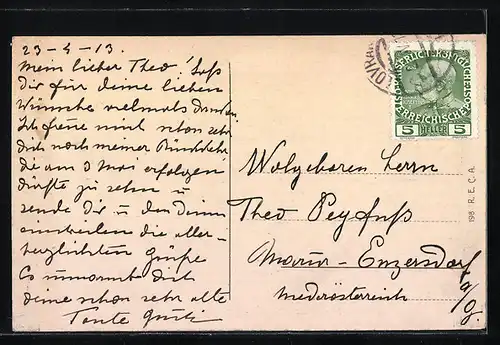 23-4-13.
Mein lieber Theo! Laß
Dir für deine lieben
Wünsche vielmals danken
Ich freue mich schon sehr
Dich nach meiner Rückkehr
die am 3 Mai erfolgen
dürfte zu sehen u
sende Dir u den Deinen
einstweilen die aller-
herzlichsten Grüße
Es umarmt Dich
deine schon sehr alte
Tante Gusti
LOVRANA
KAISERLICHE KÖNIGLICHE
ÖSTERREICHISCHE POST
5 HELLER 5
Wolgeboren Herrn
Theo Peyfuß
Maria-Enzersdorf
a/G.
Niederösterreich
198 R.E.C.A.